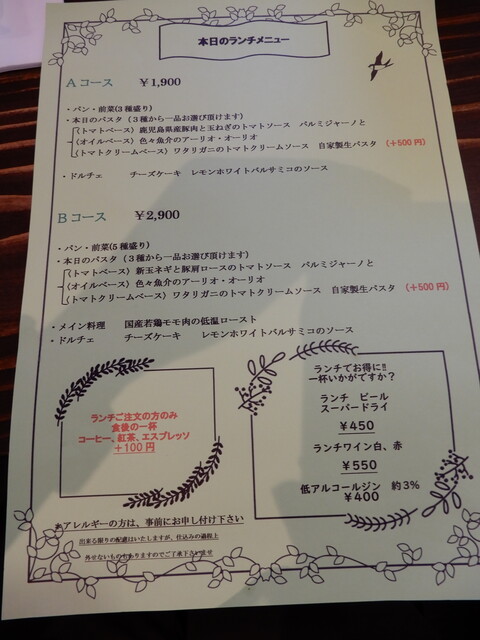 本日のランチメニュー
Aコース　￥1,900
・パン・前菜(3種盛り)
・本日のパスタ（3種から一品お選び頂けます）
〈トマトベース〉鹿児島県産豚肉と玉ねぎのトマトソース　パルミジャーノと
〈オイルベース〉色々魚介のアーリオ・オーリオ
〈トマトクリームベース〉ワタリガニのトマトクリームソース　自家製生パスタ　（+500円）
・ドルチェ　　チーズケーキ　レモンホワイトバルサミコのソース
Bコース　￥2,900
・パン・前菜(5種盛り)
・本日のパスタ（3種から一品お選び頂けます）
〈トマトベース〉新玉ネギと豚肩ロースのトマトソース　パルミジャーノと
〈オイルベース〉色々魚介のアーリオ・オーリオ
〈トマトクリームベース〉ワタリガニのトマトクリームソース　自家製生パスタ　（+500円）
・メイン料理　国産若鶏モモ肉の低温ロースト
・ドルチェ　　チーズケーキ　レモンホワイトバルサミコのソース
ランチご注文の方のみ
食後の一杯
コーヒー、紅茶、エスプレッソ
+100円
ランチでお得に!!
一杯いかがですか？
ランチ　ビール
スーパードライ
￥450
ランチワイン白、赤
￥550
低アルコールジン　約3%
￥400
※アレルギーの方は、事前にお申し付け下さい
出来る限りの配慮はいたしますが、仕込みの過程上
外せないものもありますのでご了承下さいませ